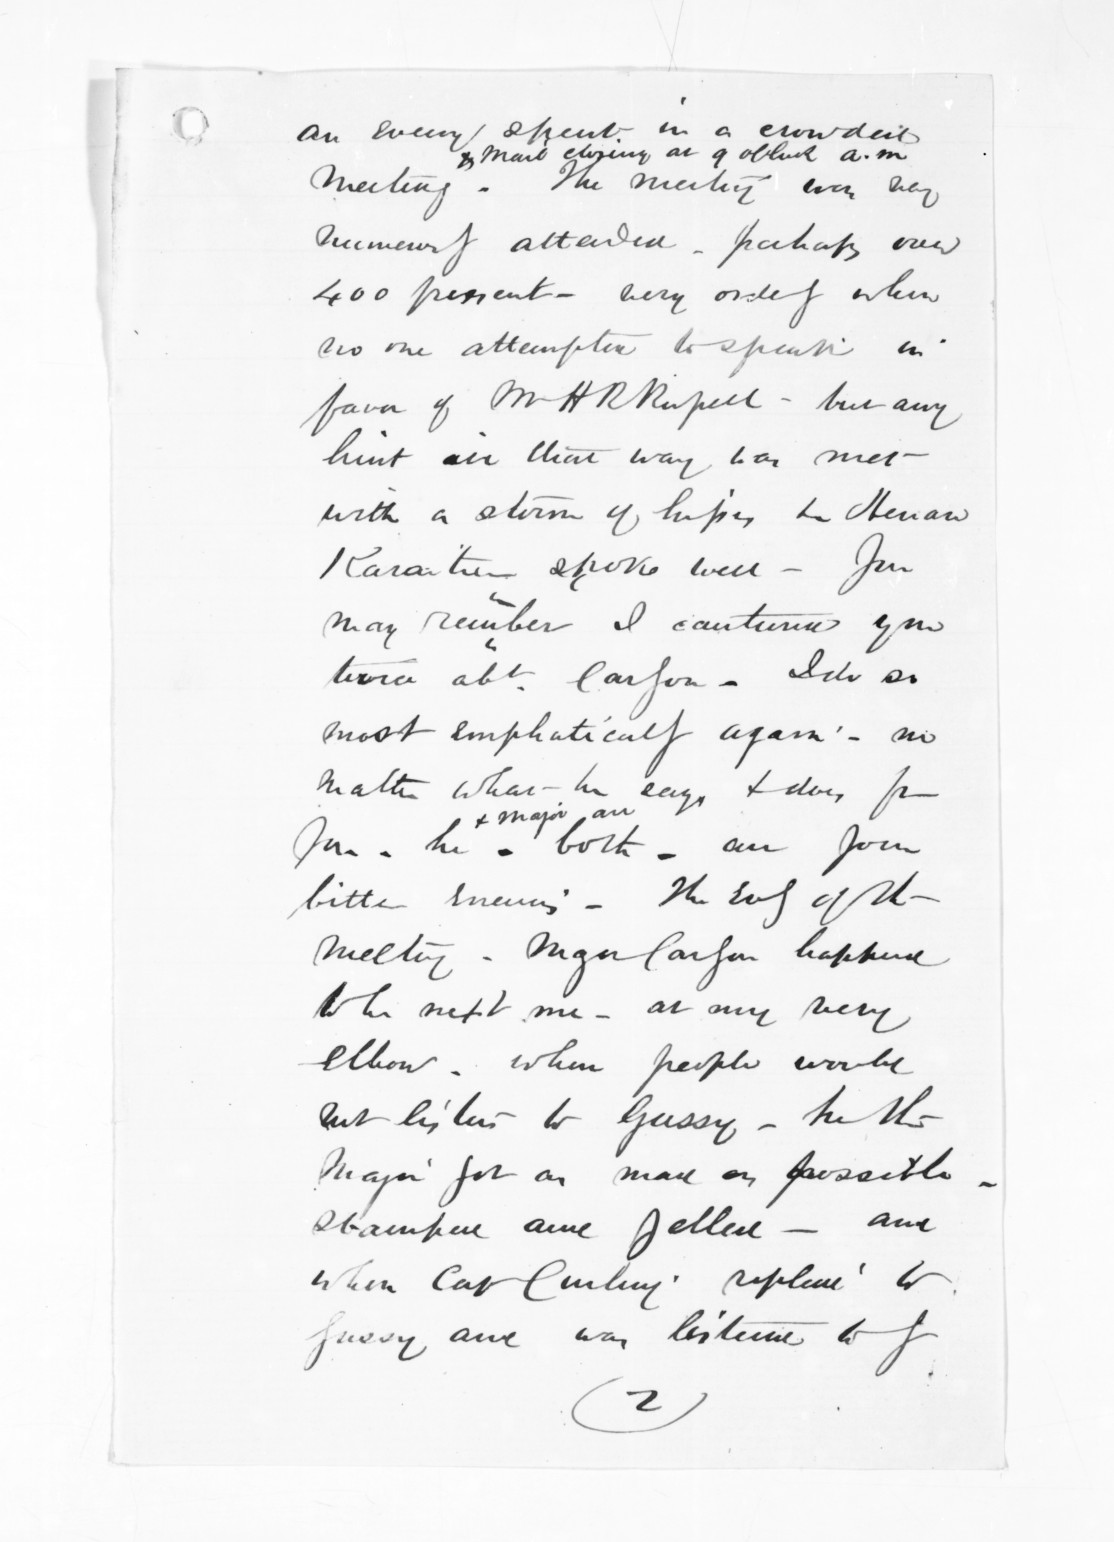 an evening spent in a crowded
& mail closing at 9 oClock a.m
Meeting - The meeting was very
numerously attended - perhaps over
400 present - very orderly when
no one attempted to speak in
favor of Mr H R Russell - but any
hint in that way was met
with a storm of hisses Henare
spoke well - You
may remember I cautioned you
twice abt. Carlyon - I do so
most emphatically again - no
matter what he says & does for
& Major are
you - he - both - are your
bitter enemies - The Evg of the
meeting - Major Carlyon happened
to be next me - at my very
elbow - when people would
not listen to Gussy - he the
Major got as mad as possible -
stamped and yelled - and
when Capt Curling replied to
Gussy and was listened to
(2)